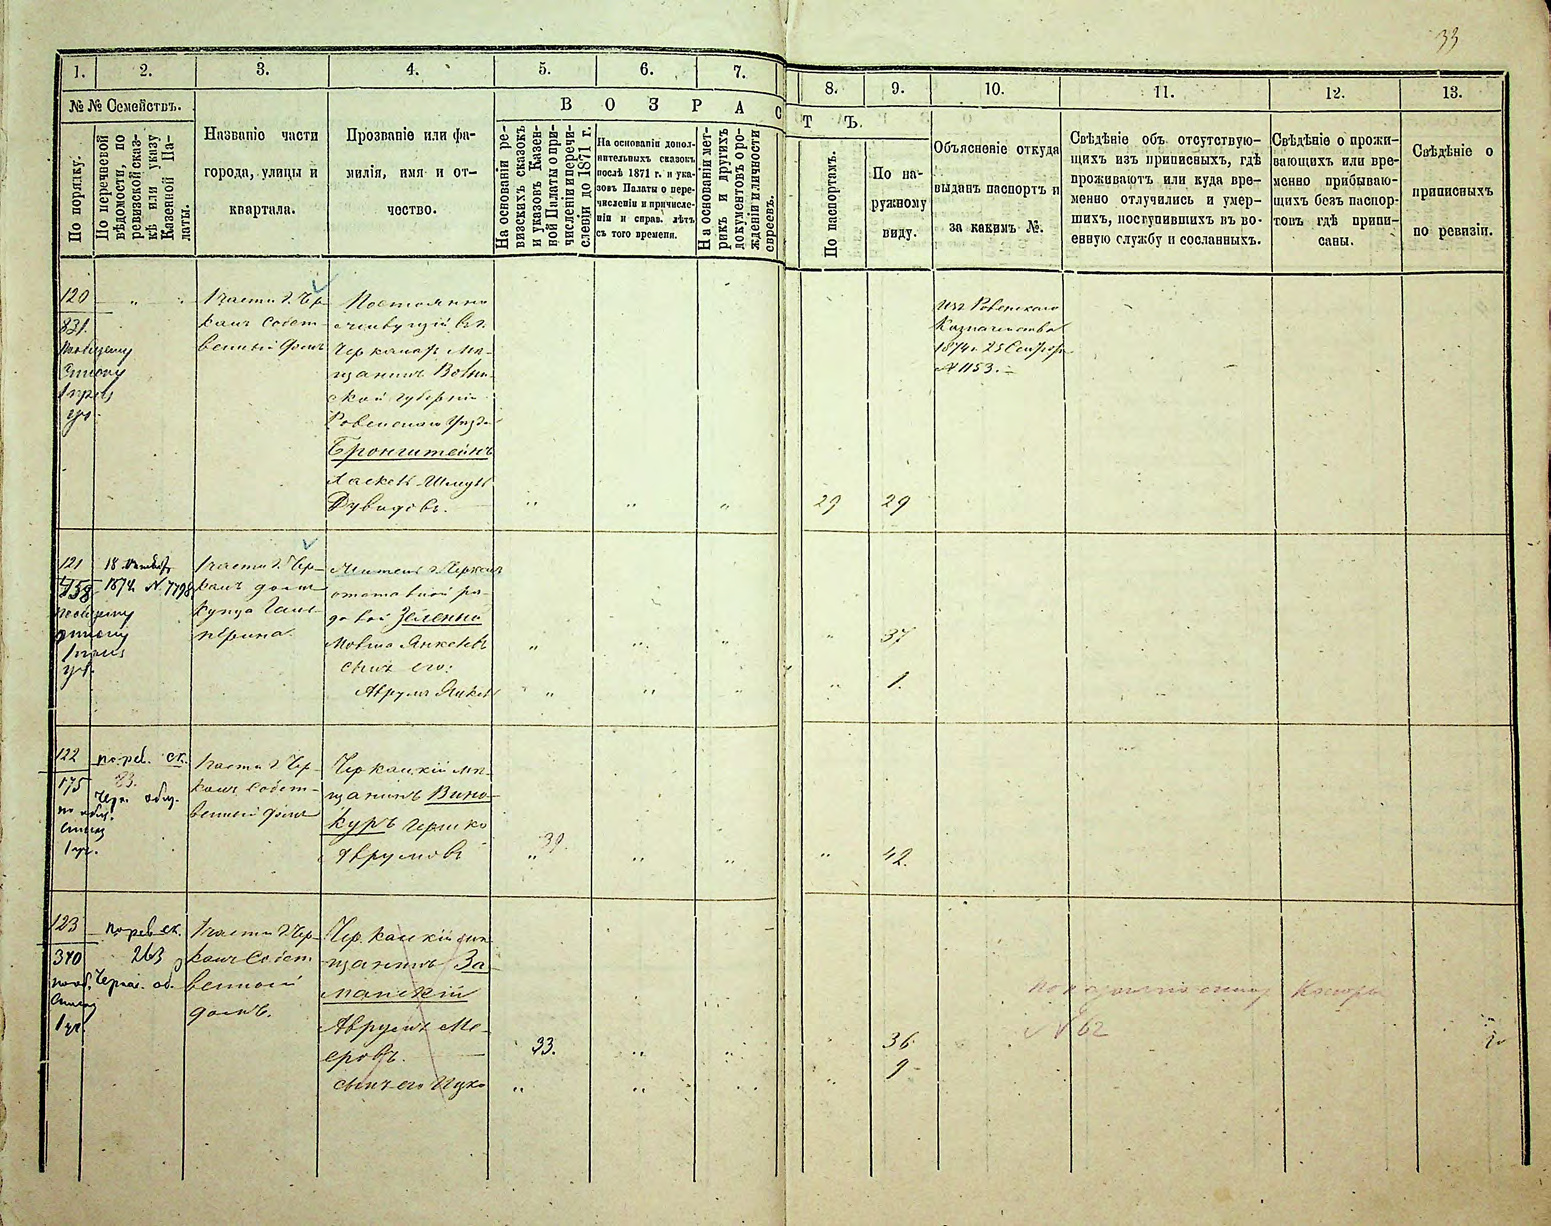 33
1. 2. 3. 4. 5. 6. 7. 8. 9. 10. 11. 12. 13.
№ № Семействъ.
ВОЗРАСТЪ.
По порядку.
По перечневой
вѣдомости, по
ревизской сказ-
кѣ или указу
Казенной Па-
латы.
Названіе части
города, улицы и
квартала.
Прозваніе или фа-
милія, имя и от-
чество.
На основаніи ре-
визскихъ сказокъ
и указовъ Казен-
ной Палаты о при-
численіи и перечи-
сленіи до 1871 г.
На основаніи допол-
нительныхъ сказокъ
послѣ 1871 г. и ука-
зовъ Палаты о пере-
численіи и причисле-
ніи и справ. лѣтъ
съ того времени.
На основаніи мет-
рикъ и другихъ
документовъ о ро-
жденіи и личности
евреевъ.
По паспортамъ.
По на-
ружному
виду.
Объясненіе откуда
выданъ паспортъ и
за какимъ №.
Свѣдѣніе объ отсутствую-
щихъ изъ приписныхъ, гдѣ
проживаютъ или куда вре-
менно отлучились и умер-
шихъ, поступившихъ въ во-
енную службу и сосланныхъ.
Свѣдѣніе о прожи-
вающихъ или вре-
менно прибываю-
щихъ безъ паспор-
товъ гдѣ припи-
саны.
Свѣдѣніе о
приписныхъ
по ревизіи.
120
831.
1 части г. Чер-
касъ собст-
венный домъ
Постоянно
живущій въ г.
Черкасахъ мѣ-
щанинъ Волын-
ской губерніи
Ровенскаго уѣзда
Бронштейнъ
Хаскель Шмуль
Дувидовъ.
29
29
Изъ Ровенскаго
Казначейства
1874 г. 25 Сентября
№ 1153.
121
758
1874 № 7798
1 части г. Чер-
касъ домъ
купца Галь-
перина
Житель г. Черкасъ
отставной ря-
довой Зеленко
Мовша Янкелевъ
сынъ его:
Аврумъ Янкель
37
1.
122
175
1 уч.
по рев. ск.
23.
1 части г. Чер-
касъ собст-
венный домъ
Черкаскій мѣ-
щанинъ Вино-
куръ Гершко
Аврумовъ
39.
42.
123
370
1 уч.
по рев. ск.
263
1 части г. Чер-
касъ собст-
венной
домъ.
Черкаскій мѣ-
щанинъ За-
манскій
Аврумъ Ме-
еровъ.
сынъ его Ицко
33.
36
9
№ 62